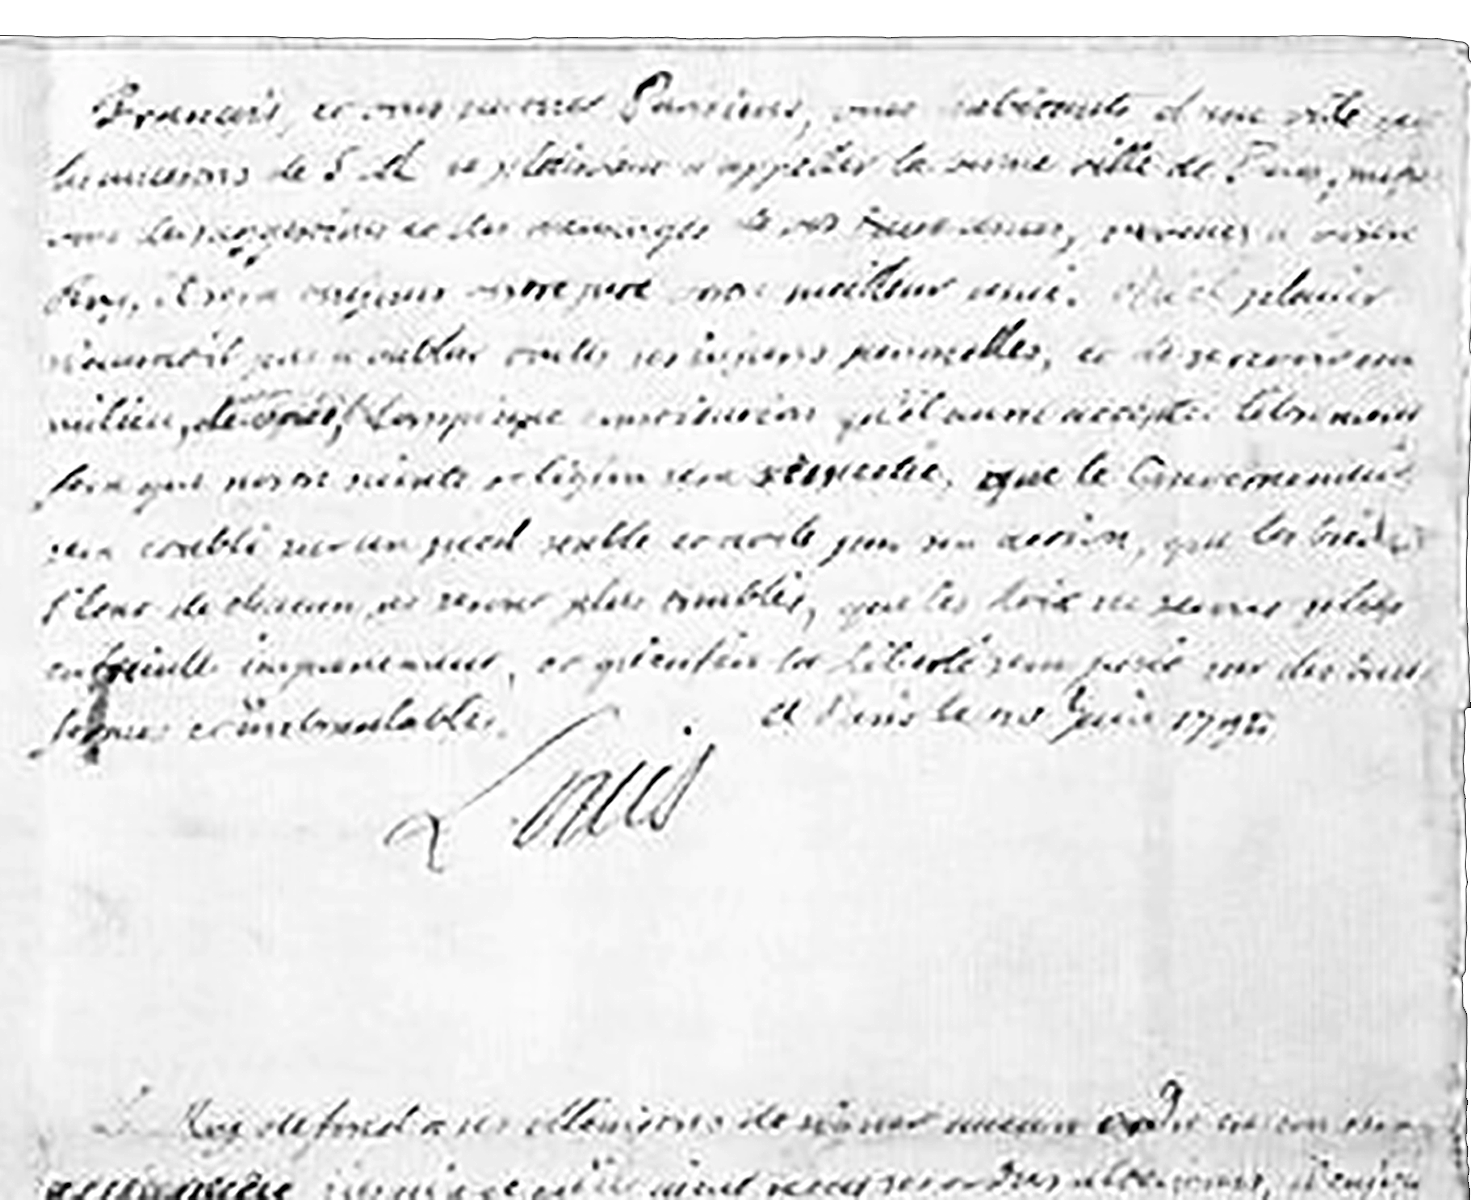 Francois, et vous surtout Parisiens, vous habitants d'une ville que
les ancetres de S. M. se plaisoient a appeller la bonne ville de Paris, mefiez
vous des suggestions et des mensonges de vos faux amis, revenez a votre
Roy, il sera toujours votre pere votre meilleur ami. Quel plaisir
n'auroit il pas a oublier toutes ses injures personnelles, et de se revoir au
milieu de vous, lorsqu'une constitution qu'il aura acceptée librement
fera que notre sainte religion sera respectée, que le Gouvernement
sera etabli sur un pied stable et utile par son action, que les biens et
l'etat de chacun ne seront plus troublés, que les loix ne seront plus
enfreintes impunement, et qu'enfin la Liberté sera posée sur des bases
fermes et inebranlables. A Paris le 20 Juin 1791
Louis
Le Roy defend a ses Ministres de signer aucun ordre en son nom